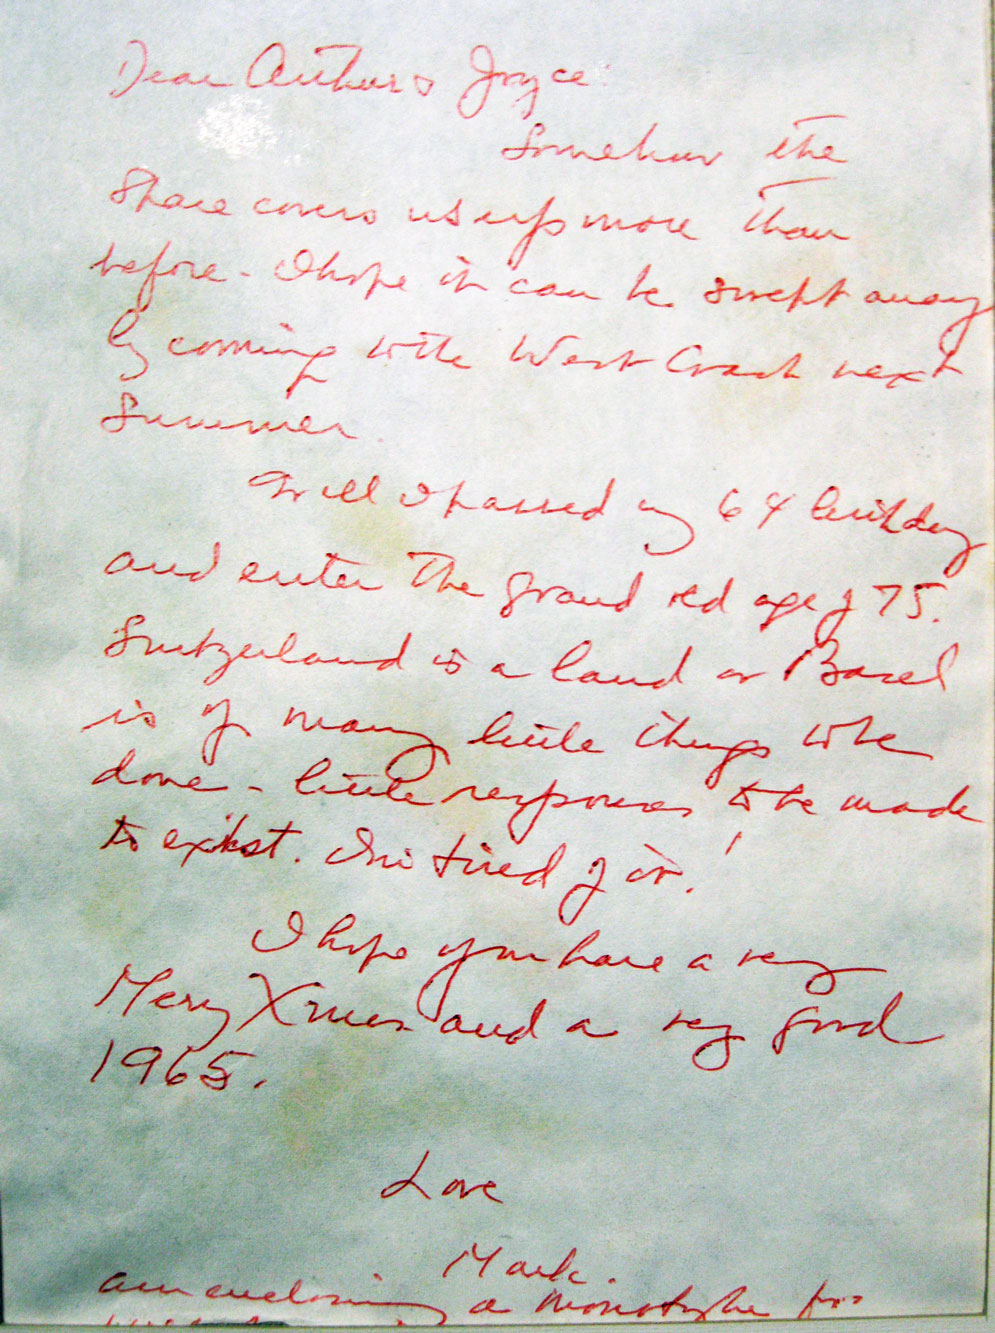 Dear Arthur & Joyce:
Somehow the
space covers us up more than
before - I hope it can be swept away
by coming to the West Coast next
Summer.
Well I passed my 64 birthday
and enter the grand old age of 75.
Switzerland is a land or Basel
is of many little things to be
done - little responses to be made
to exist. I'm tired of it!
I hope you have a very
Merry Xmas and a very good
1965.
Love
Mark.
am enclosing a monotype for